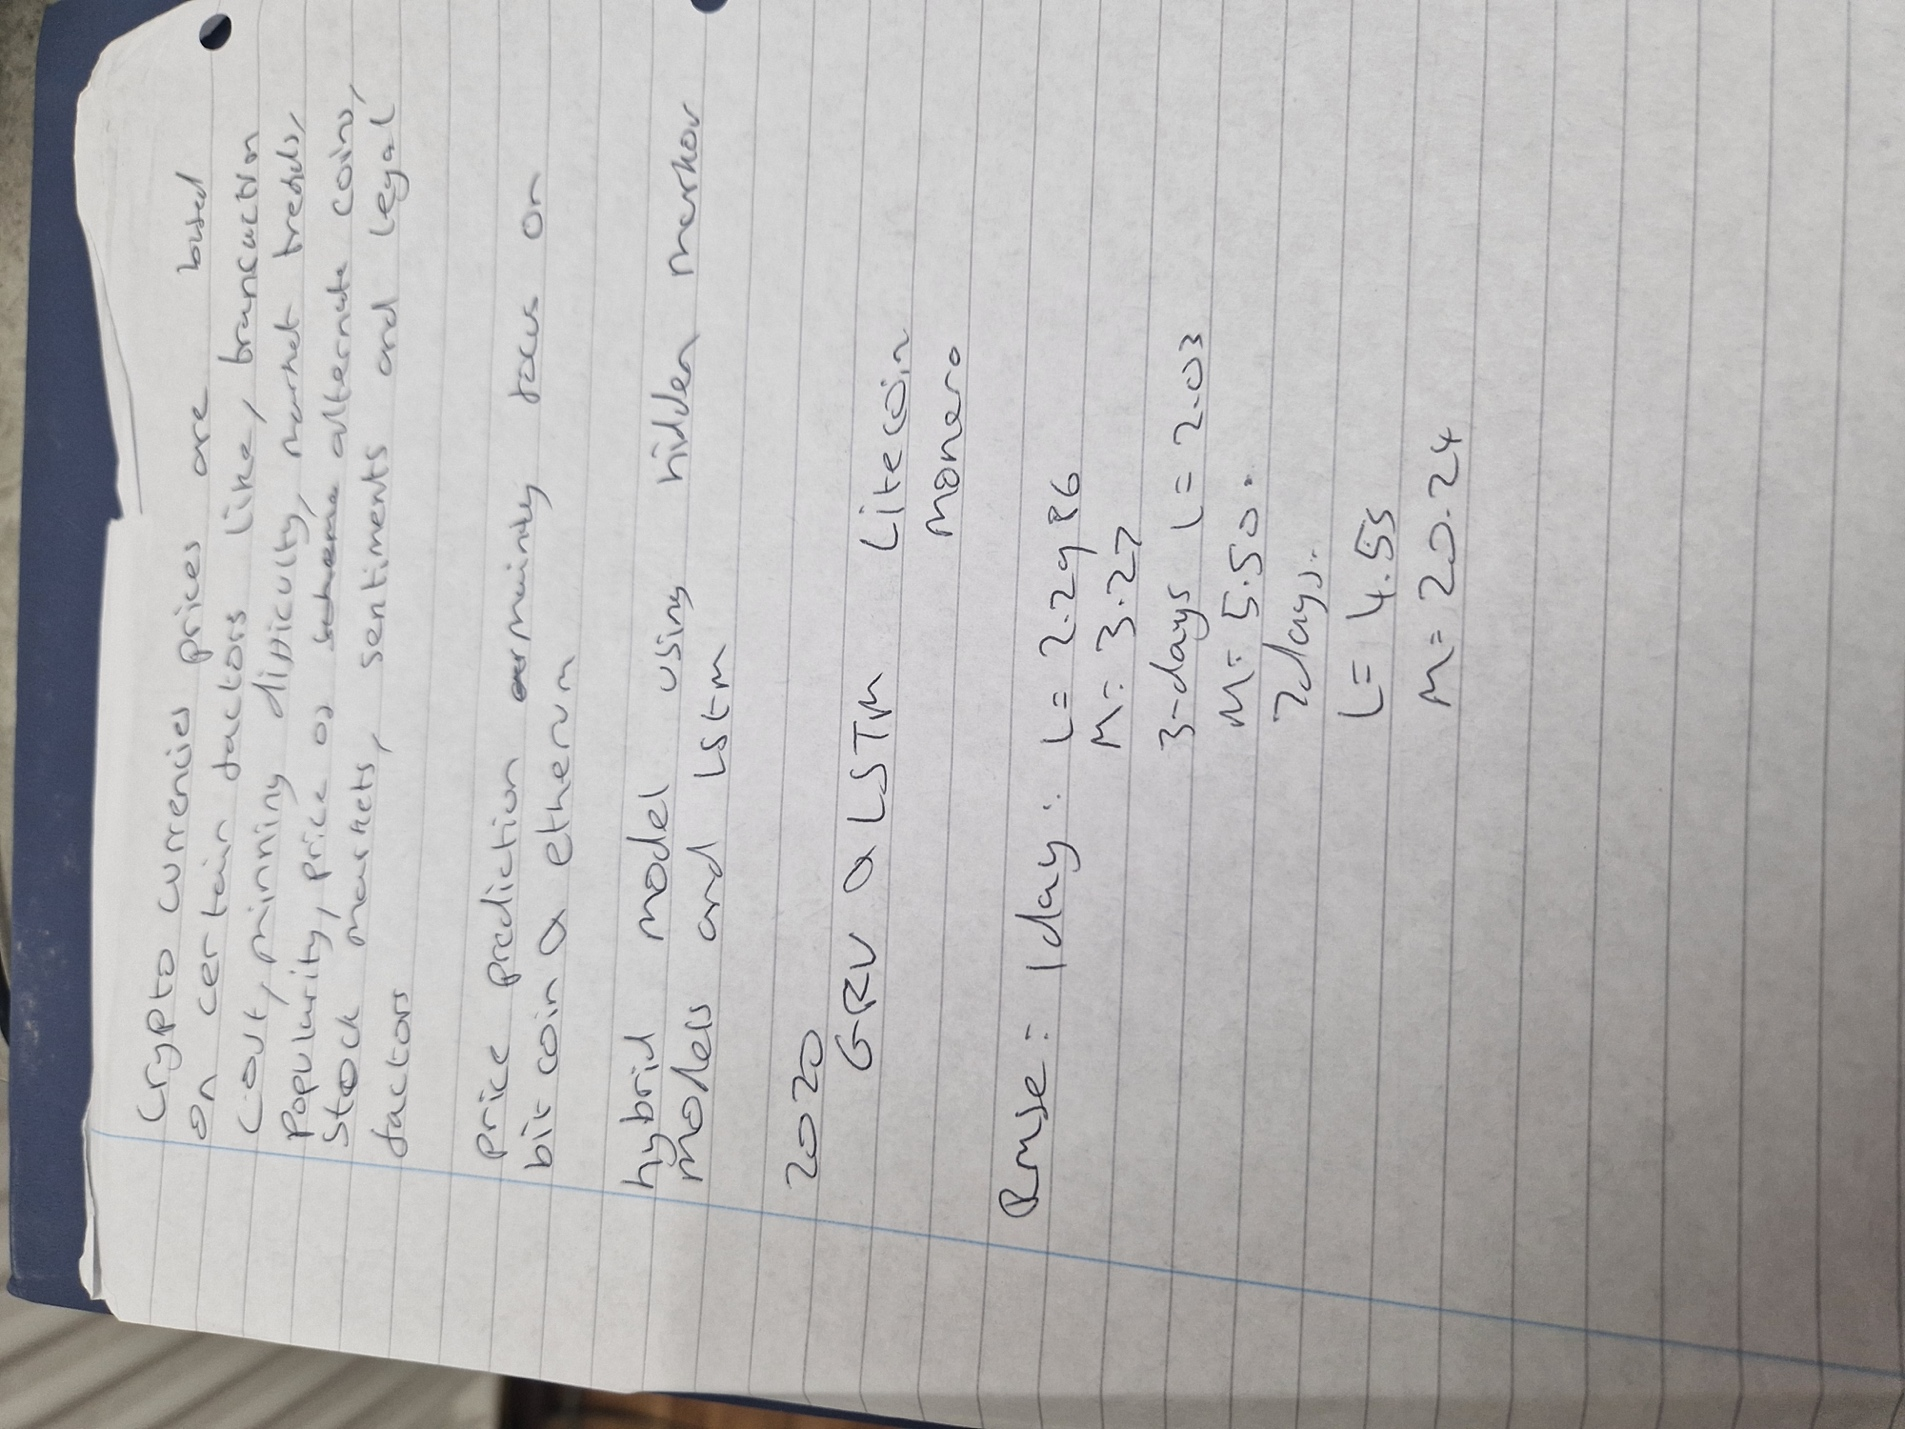 Crypto currencies prices are based
on certain factors like, transaction
cost, minning difficulty, market treds,
Popularity, price of alternate coins,
Stock markets, sentiments and legal
factors
price prediction mainly focus on
bit coin & etherum
hybrid model using hidden markov
models and lstm
2020
GRU & LSTM Litecoin
monero
Rmse: 1day: L= 2.2986
M= 3.27
3-days L= 2.03
M= 5.50.
7days:
L= 4.55
M= 20.24